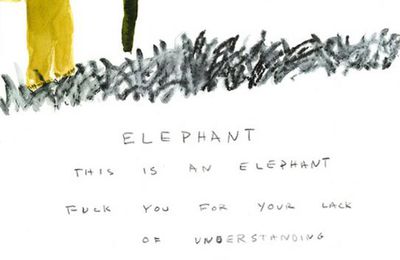 ELEPHANT
THIS IS AN ELEPHANT
FUCK YOU FOR YOUR LACK
OF UNDERSTANDING